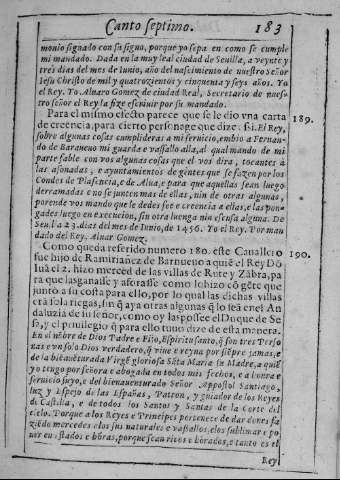 Canto septimo. 183
monio signado con su signo, porque yo sepa en como se cumple
mi mandado. Dada en la muy leal ciudad de Seuilla, a veynte y
tres dias del mes de Iunio, año del nascimiento de nuestro Señor
Iesu Christo de mil y quatrozientos y cinquenta y seys años. Yo
el Rey. Yo Aluaro Gomez de ciudad Real, Secretario de nues-
tro señor el Rey la fize escriuir por su mandado.
Para el mismo efecto parece que se le dio vna carta 189.
de creencia, para cierto personage que dize: si. El Rey,
sobre algunas cosas cumplideras a mi seruicio, embio a Fernan-
do de Barnueuo mi guarda e vassallo alla, al qual mando de mi
parte fable con vos algunas cosas que el vos dira, tocantes à
las asonadas, e ayuntamientos de gentes que se fazen por los
Condes de Plasencia, e de Alua, e para que aquellas sean luego
derramadas e no se junten mas de ellas, nin de otras algunas,
porende vos mando que le dedes fee e creencia a ellas, e las pon-
gades luego en execucion, sin otra luenga nin escusa alguna. De
Seuilla 23. dias del mes de Iunio, de 1456. Yo el Rey. Por man-
dado del Rey. Aluar Gomez.
Como queda referido numero 180. este Cauallero 190.
fue hijo de Ramiriañez de Barnueuo a quiē el Rey Dō
Iuā el 2. hizo merced de las villas de Rute y Zābra, pa
ra que las ganasse y aforasse como lo hizo cō gēte que
junto a su costa para ello, por lo qual las dichas villas
està sola riegas, sin q̄ aya otras algunas q̄ lo seā en el An
daluzia de su señor, como oy las possee el Duque de Se
sa, y el priuilegio q̄ para ello tuuo dize de esta manera.
En el nōbre de Dios Padre e Fijo, Espiritu santo, q̄ son tres Perso
nas e vn solo Dios verdadero, q̄ viue e reyna por siēpre jamas, e
de la bienauēturada Virgē gloriosa Sāta Maria su Madre, a quiē
yo tengo por señora e abogada en todos mis fechos, e a honra e
seruicio suyo, e del bienauenturado Señor Appostol Santiago,
luz y Espejo de las Españas, Patron, y guiador de los Reyes
de Castilla, e de todos los Santos y Santas de la Corte del
cielo. Porque a los Reyes e Principes pertenece de dar dones fa
ziēdo mercedes a los sus naturales e vassallos, e los sublimar e po
ner en estados e hōras, porque sean ricos e hōrados, e tanto es el
Rey